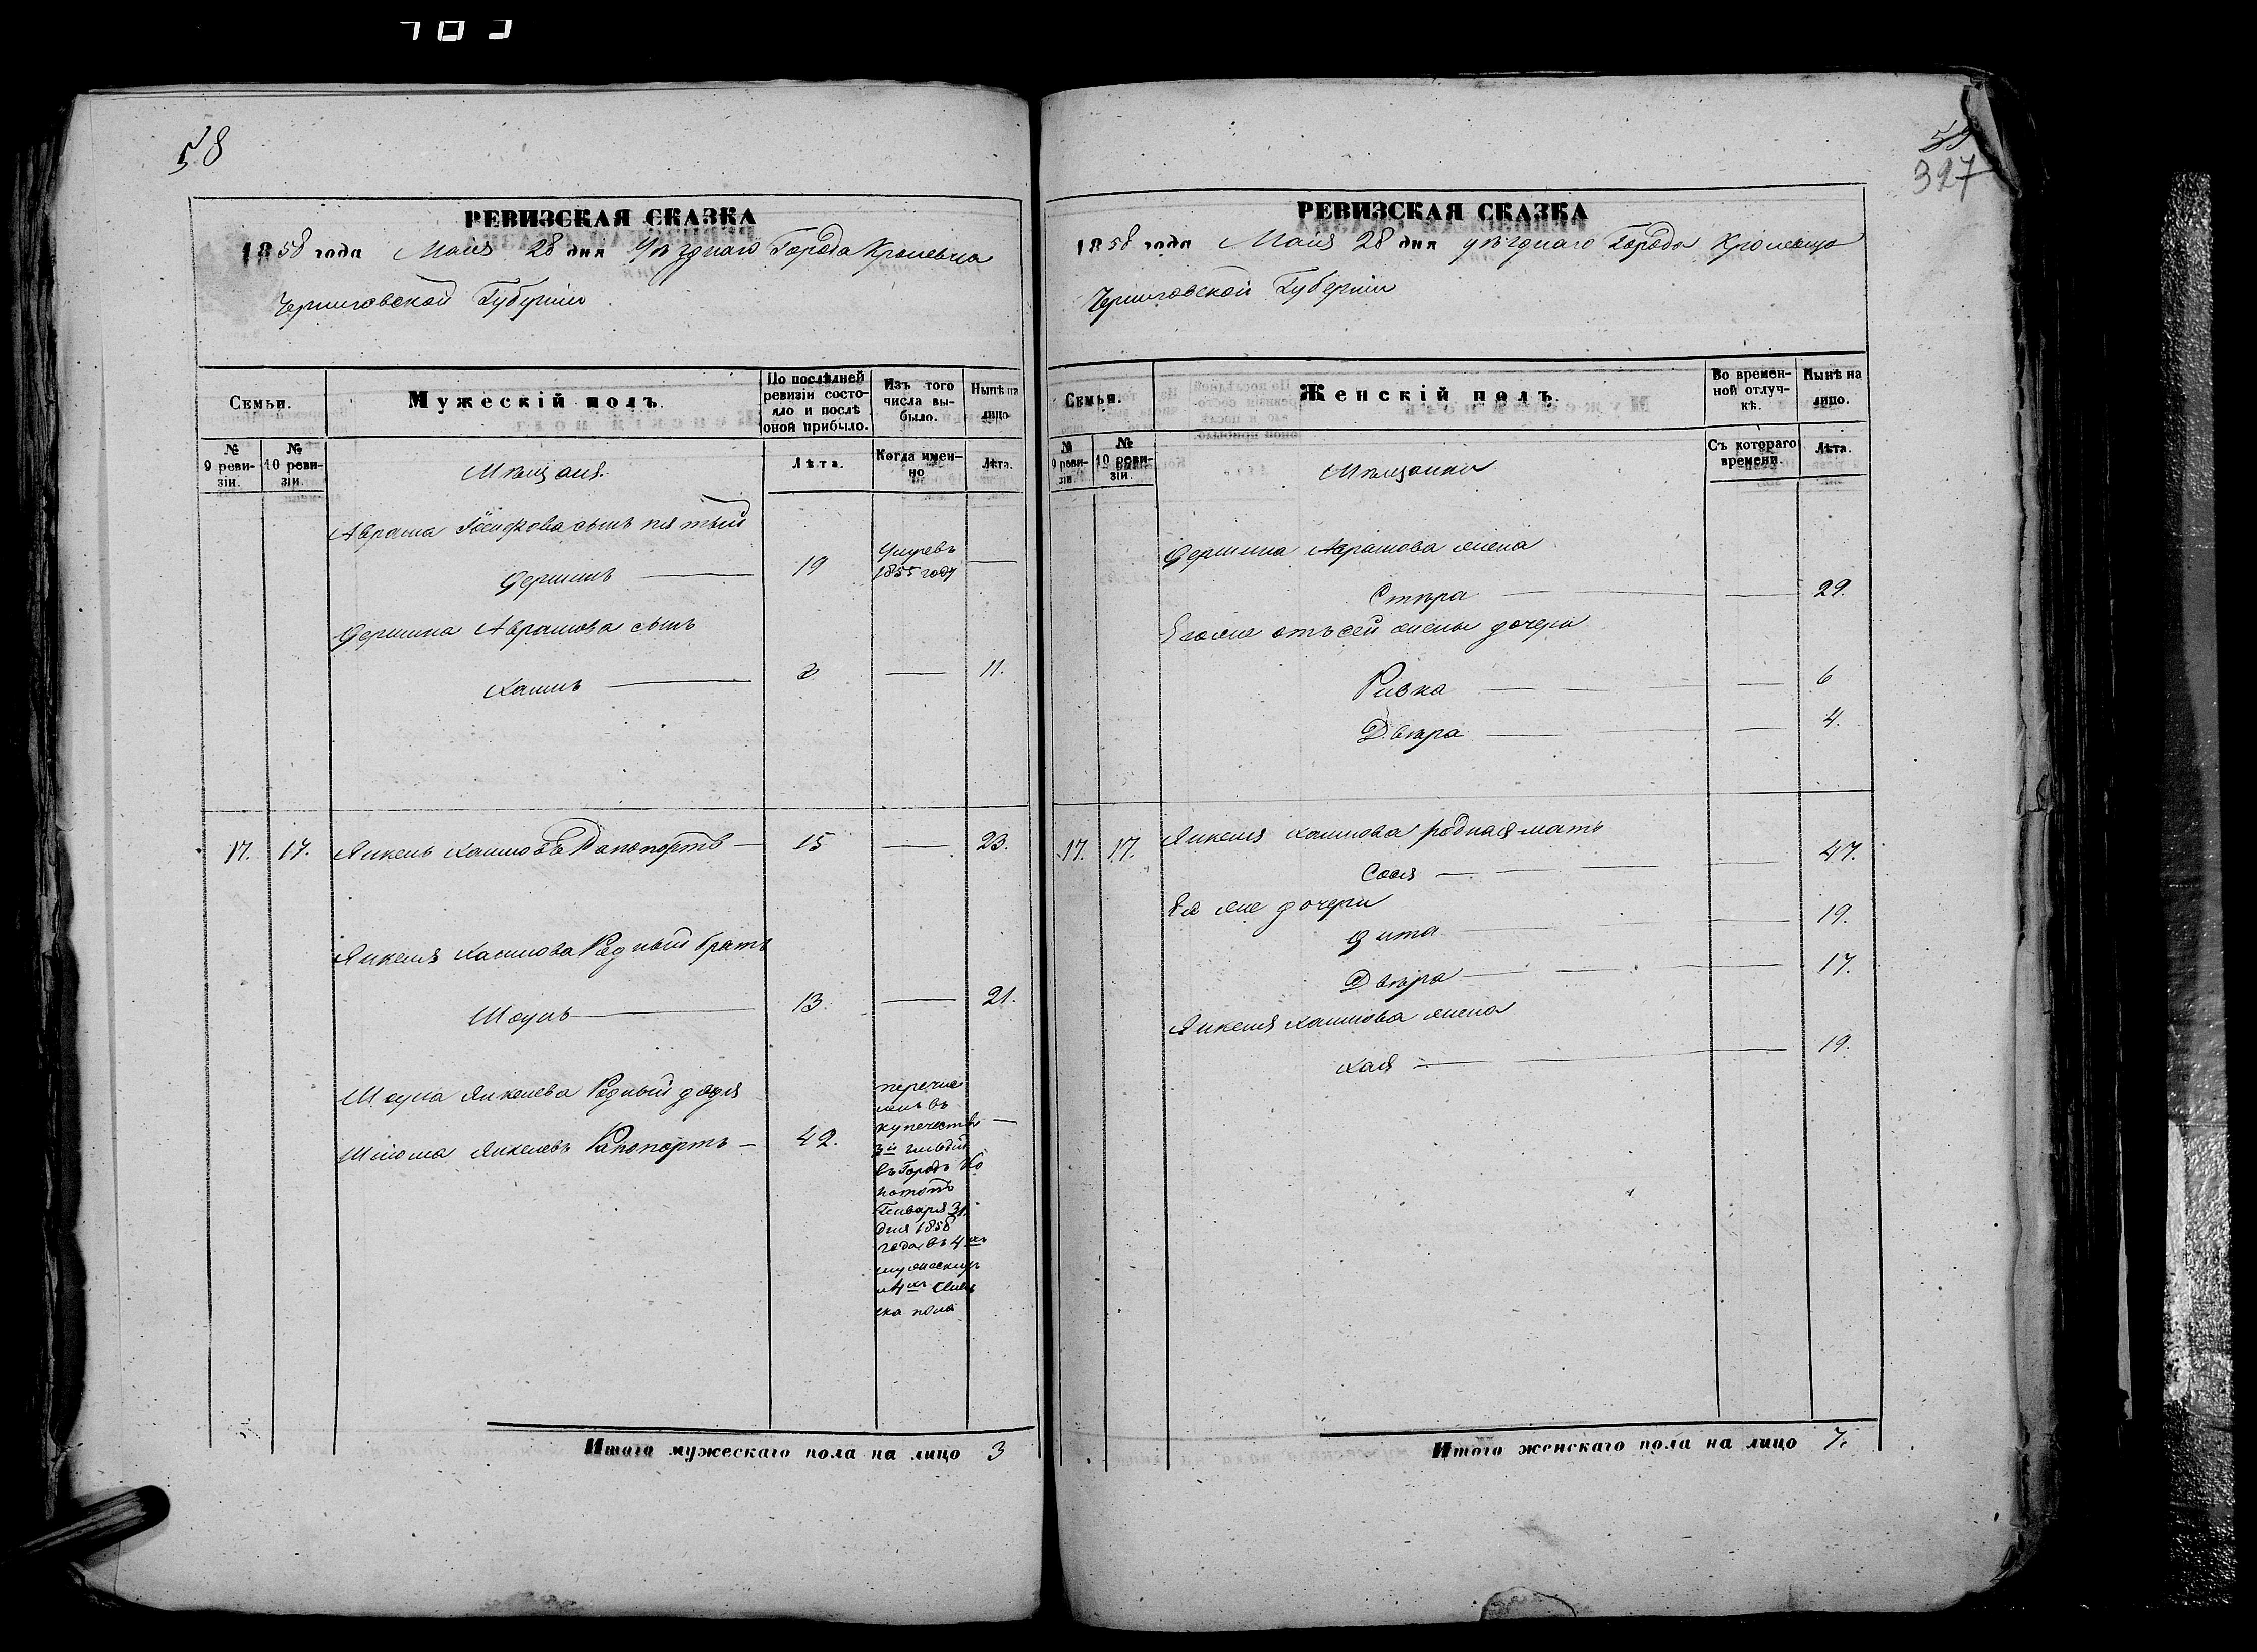 58
РЕВИЗСКАЯ СКАЗКА
1858 года Мая 28 дня уѣзднаго Города Кролевца
Черниговской Губерніи
Семьи.
Мужескій полъ.
По послѣдней ревизіи состояло и послѣ оной прибыло.
Изъ того числа выбыло.
Нынѣ на лицо
№ 9 ревизіи.
№ 10 ревизіи.
Мѣщане.
Лѣта.
Когда именно
Лѣта.
Аврама сынъ пятый
Гершинъ — 19 Умревъ 1855 году —
Гершина Аврамова сынъ
Хаимъ — 3 — 11.
17. 17. Янкель Хаимовъ Рапопортъ — 15 — 23.
Янкеля Хаимова Родный братъ
Шоулъ — 13. — 21.
Шоула Янкелева Родный дядя
Шліома Янкелевъ Рапопортъ — 42. —
перечис
ленъ въ
купечество
3й гильдіи
въ Городъ Ко
нотопъ
Генваря 31
дня 1858
года въ 4хъ
мужескихъ
и 4хъ женс
ка пола
Итого мужескаго пола на лицо 3
327
РЕВИЗСКАЯ СКАЗКА
1858 года Мая 28 дня уѣзднаго Города Кролевца
Черниговской Губерніи
Семьи.
Женскій полъ.
Во временной отлучкѣ.
Нынѣ на лицо.
№ 9 ревизіи.
№ 10 ревизіи.
Мѣщанки
Съ котораго времени.
Лѣта.
Гершина Аврамова жена
Стѣра — — 29.
Его же отъ сей жены дочери
Ривка — — 6
Двѣра — — 4.
17. 17. Янкеля Хаимова родная мать
Сося — — 47.
Ея же дочери
Гита — — 19.
Двѣра — — 17.
Янкеля Хаимова жена
Хая — — 19.
Итого женскаго пола на лицо 7.